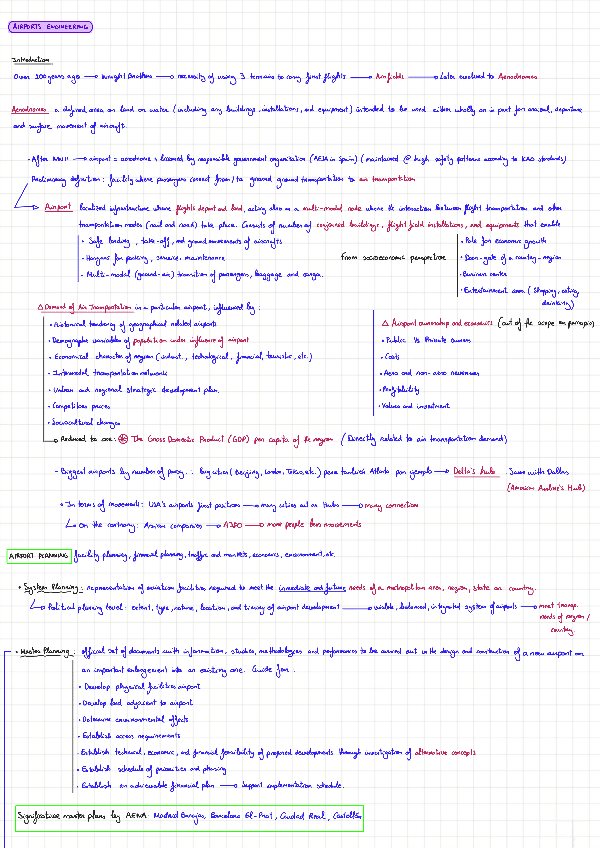 AIRPORTS ENGINEERING
Introduction
Over 100 years ago → Wright Brothers → necessity of using 3 terrains to carry first flights → Airfields → Later evolved to Aerodromes
Aerodromes: a defined area on land or water (including any buildings, installations, and equipment) intended to be used either wholly or in part for arrival, departure
and surface movement of aircraft.
· After WWII → airport = aerodrome + licensed by responsible government organization (in Spain) (maintained @ high safety patterns according to standards)
Preliminary definition: facility where passengers connect from/to ground transportation to air transportation
→ Airport: localized infrastructure where flights depart and land, acting also as a multi-model node where the interaction between flight transportation and other
transportation modes (rail and road) take place. Consists of number of conjoined buildings, flight field installations, and equipments that enable
· Safe landing, take-off, and ground movements of aircrafts
· Hangars for parking, service, maintenance
· Multi-modal (ground-air) transition of passengers, baggage and cargo.
from socioeconomic perspective
· Pole for economic growth
· Door-gate of a country-region
· Business center
· Entertainment area (shopping, eating,
drinking)
△ Demand of Air Transportation in a particular airport, influenced by:
· Historical tendency of geographical related airports
· Demographic variables of population under influence of airport
· Economical character of region (industr., technological, financial, touristic, etc.)
· Intermodal transportation networks
· Urban and regional strategic development plan.
· Competitors prices
· Sociocultural changes
→ Reduced to one: The Gross Domestic Product (GDP) per capita of the region (Directly related to air transportation demand)
△ Airport ownership and economics (out of the scope en principio)
· Public Vs Private owners
· Costs
· Aero and non-aero revenues
· Profitability
· Values and investment
- Biggest airports by number of : big cities (Beijing, London, Tokio, etc.) pero también Atlanta por ejemplo → Delta's hub. Same with Dallas
(American Airline's Hub)
· In terms of movements: USA's airports first positions → many cities act as Hubs → many connections
→ On the contrary: Asian companies → A380 → more people less movements
AIRPORT PLANNING: facility planning, financial planning, traffic and markets, economics, environment, etc.
· System Planning: representation of aviation facilities required to meet the immediate and future needs of a metropolitan area, region, state or country.
→ Political planning level: extent, type, nature, location, and timing of airport development → viable, balanced, integrated system of airports → meet transp.
needs of region/
country
· Master Planning: official set of documents with information, studies, methodologies and performances to be carried out in the design and construction of a new airport or
an important enlargement into an existing one. Guide for:
· Develop physical facilities airport
· Develop land adjacent to airport
· Determine environmental effects
· Establish access requirements
· Establish technical, economic, and financial feasibility of proposed developments through investigation of alternative concepts
· Establish schedule of priorities and phasing
· Establish an achievable financial plan → support implementation schedule.
Significative master plans by AENA: Madrid Barajas, Barcelona El-Prat, Ciudad Real, Castellón